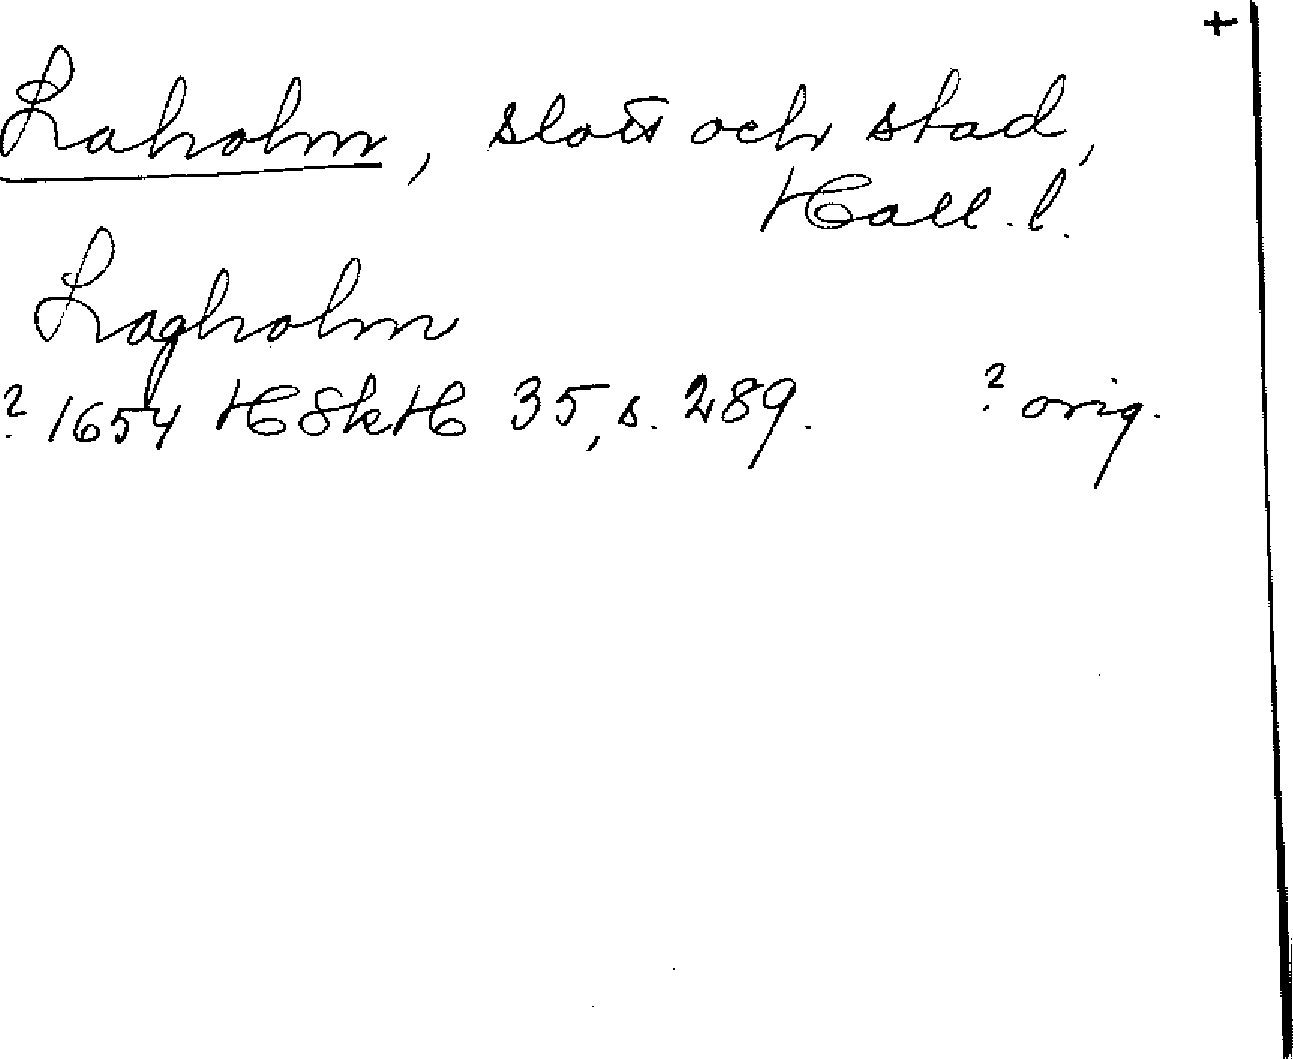 +
Laholm, slott och stad,
Hall. l.
Lagholm
? 1654 HSkH 35, s. 289. ? orig.